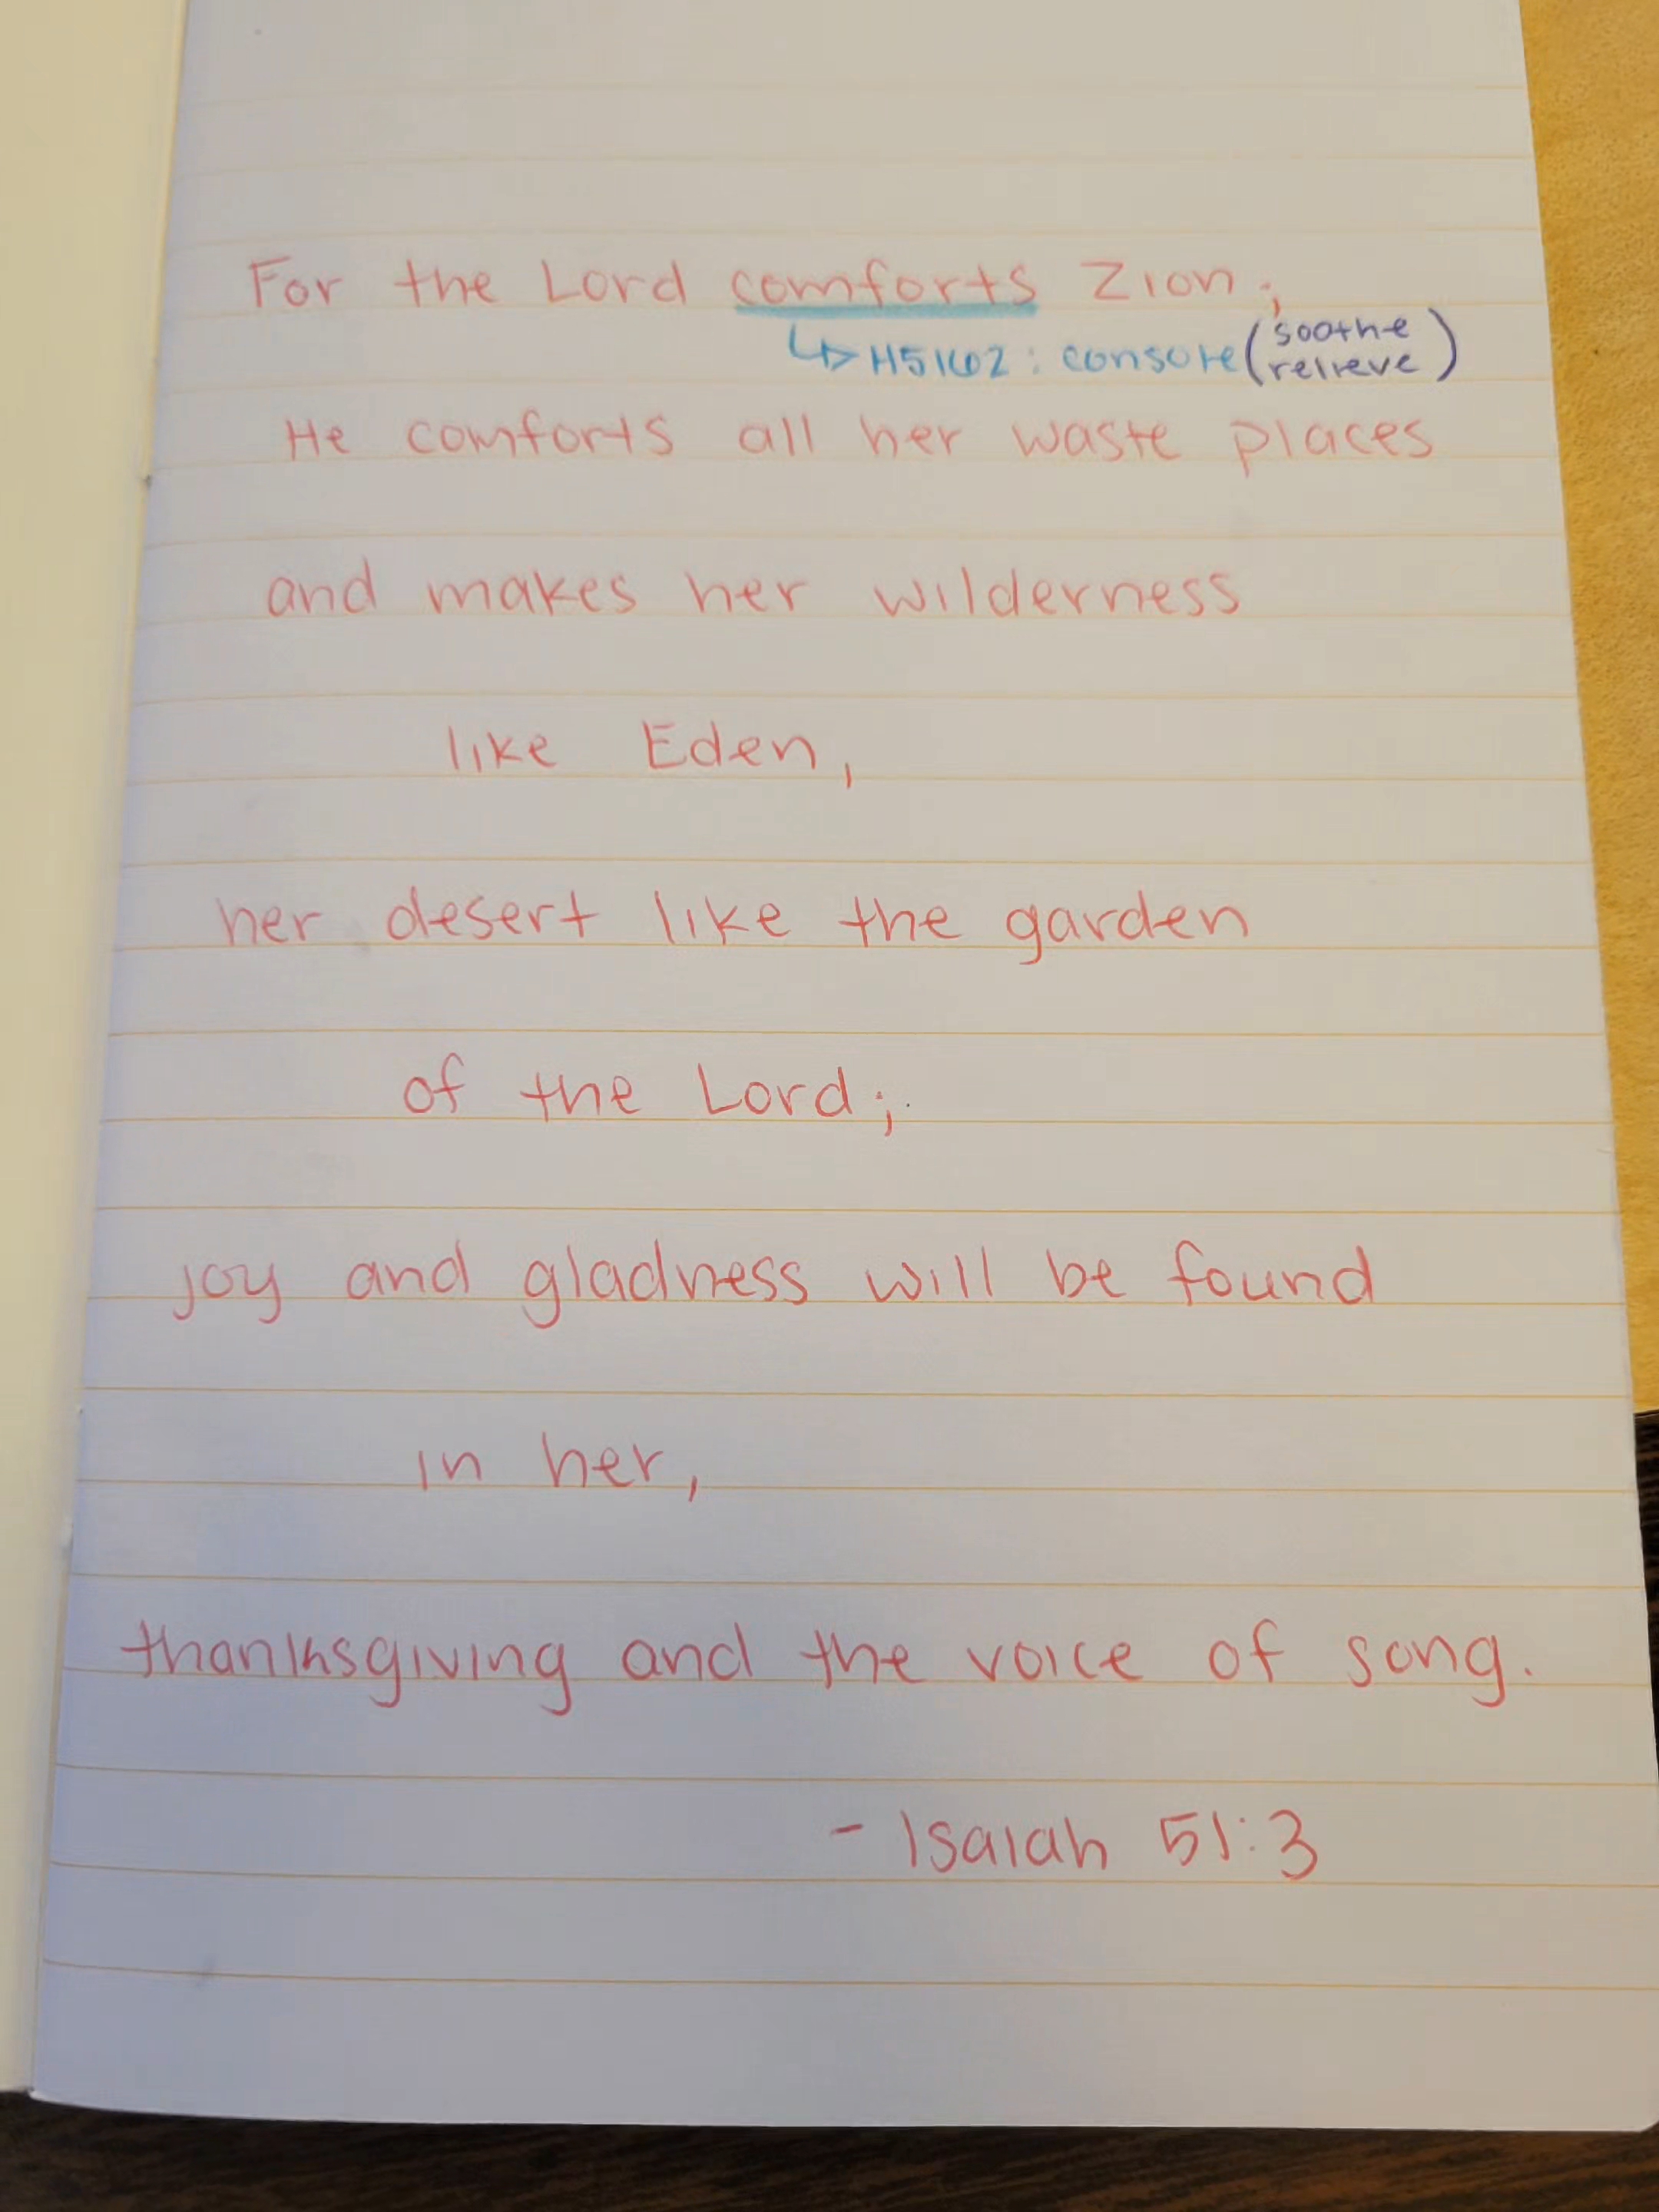 For the Lord comforts Zion;
↳ H5162: console (soothe relieve)
He comforts all her waste places
and makes her wilderness
like Eden,
her desert like the garden
of the Lord;
joy and gladness will be found
in her,
thanksgiving and the voice of song.
- Isaiah 51:3